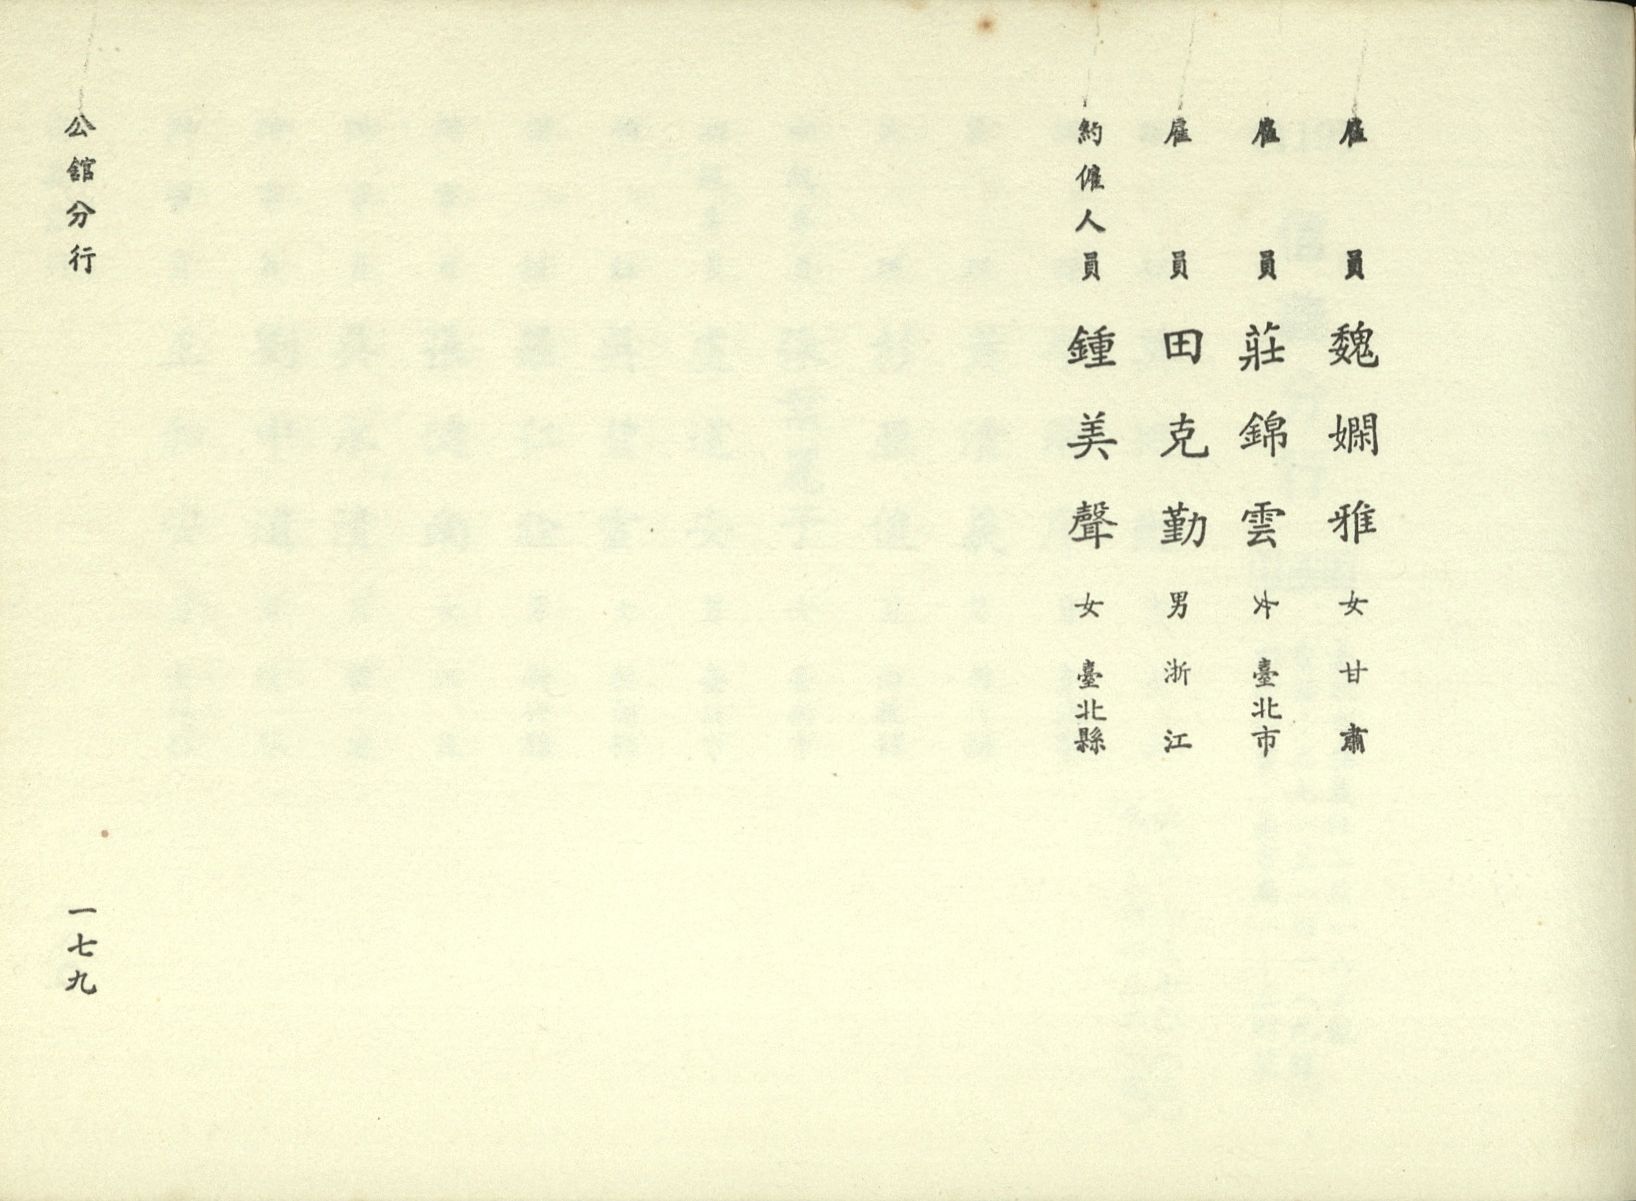 雇員 魏嫻雅 女 甘肅
雇員 莊錦雲 女 臺北市
雇員 田克勤 男 浙江
約僱人員 鍾美聲 女 臺北縣
公館分行
一七九